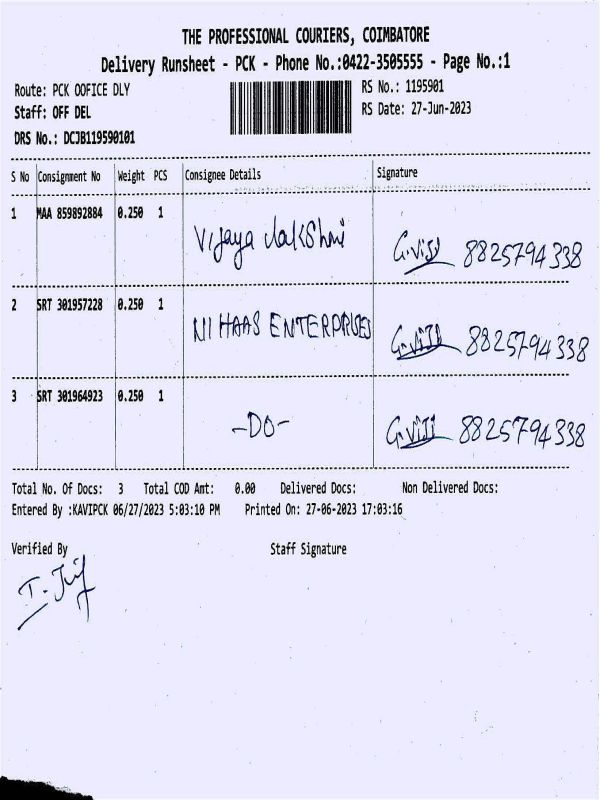 THE PROFESSIONAL COURIERS, COIMBATORE
Delivery Runsheet - PCK - Phone No.:0422-3505555 - Page No.:1
Route: PCK OOFICE DLY RS No.: 1195901
Staff: OFF DEL RS Date: 27-Jun-2023
DRS No.: DCJB119590101
S No Consignment No Weight PCS Consignee Details Signature
1 MAA 859892884 0.250 1 Vijaya lakshmi G.Viji 8825794338
2 SRT 301957228 0.250 1 NIHAAS ENTERPRISES G.Viji 8825794338
3 SRT 301964923 0.250 1 -DO- G.Viji 8825794338
Total No. Of Docs: 3 Total COD Amt: 0.00 Delivered Docs: Non Delivered Docs:
Entered By :KAVIPCK 06/27/2023 5:03:10 PM Printed On: 27-06-2023 17:03:16
Verified By Staff Signature